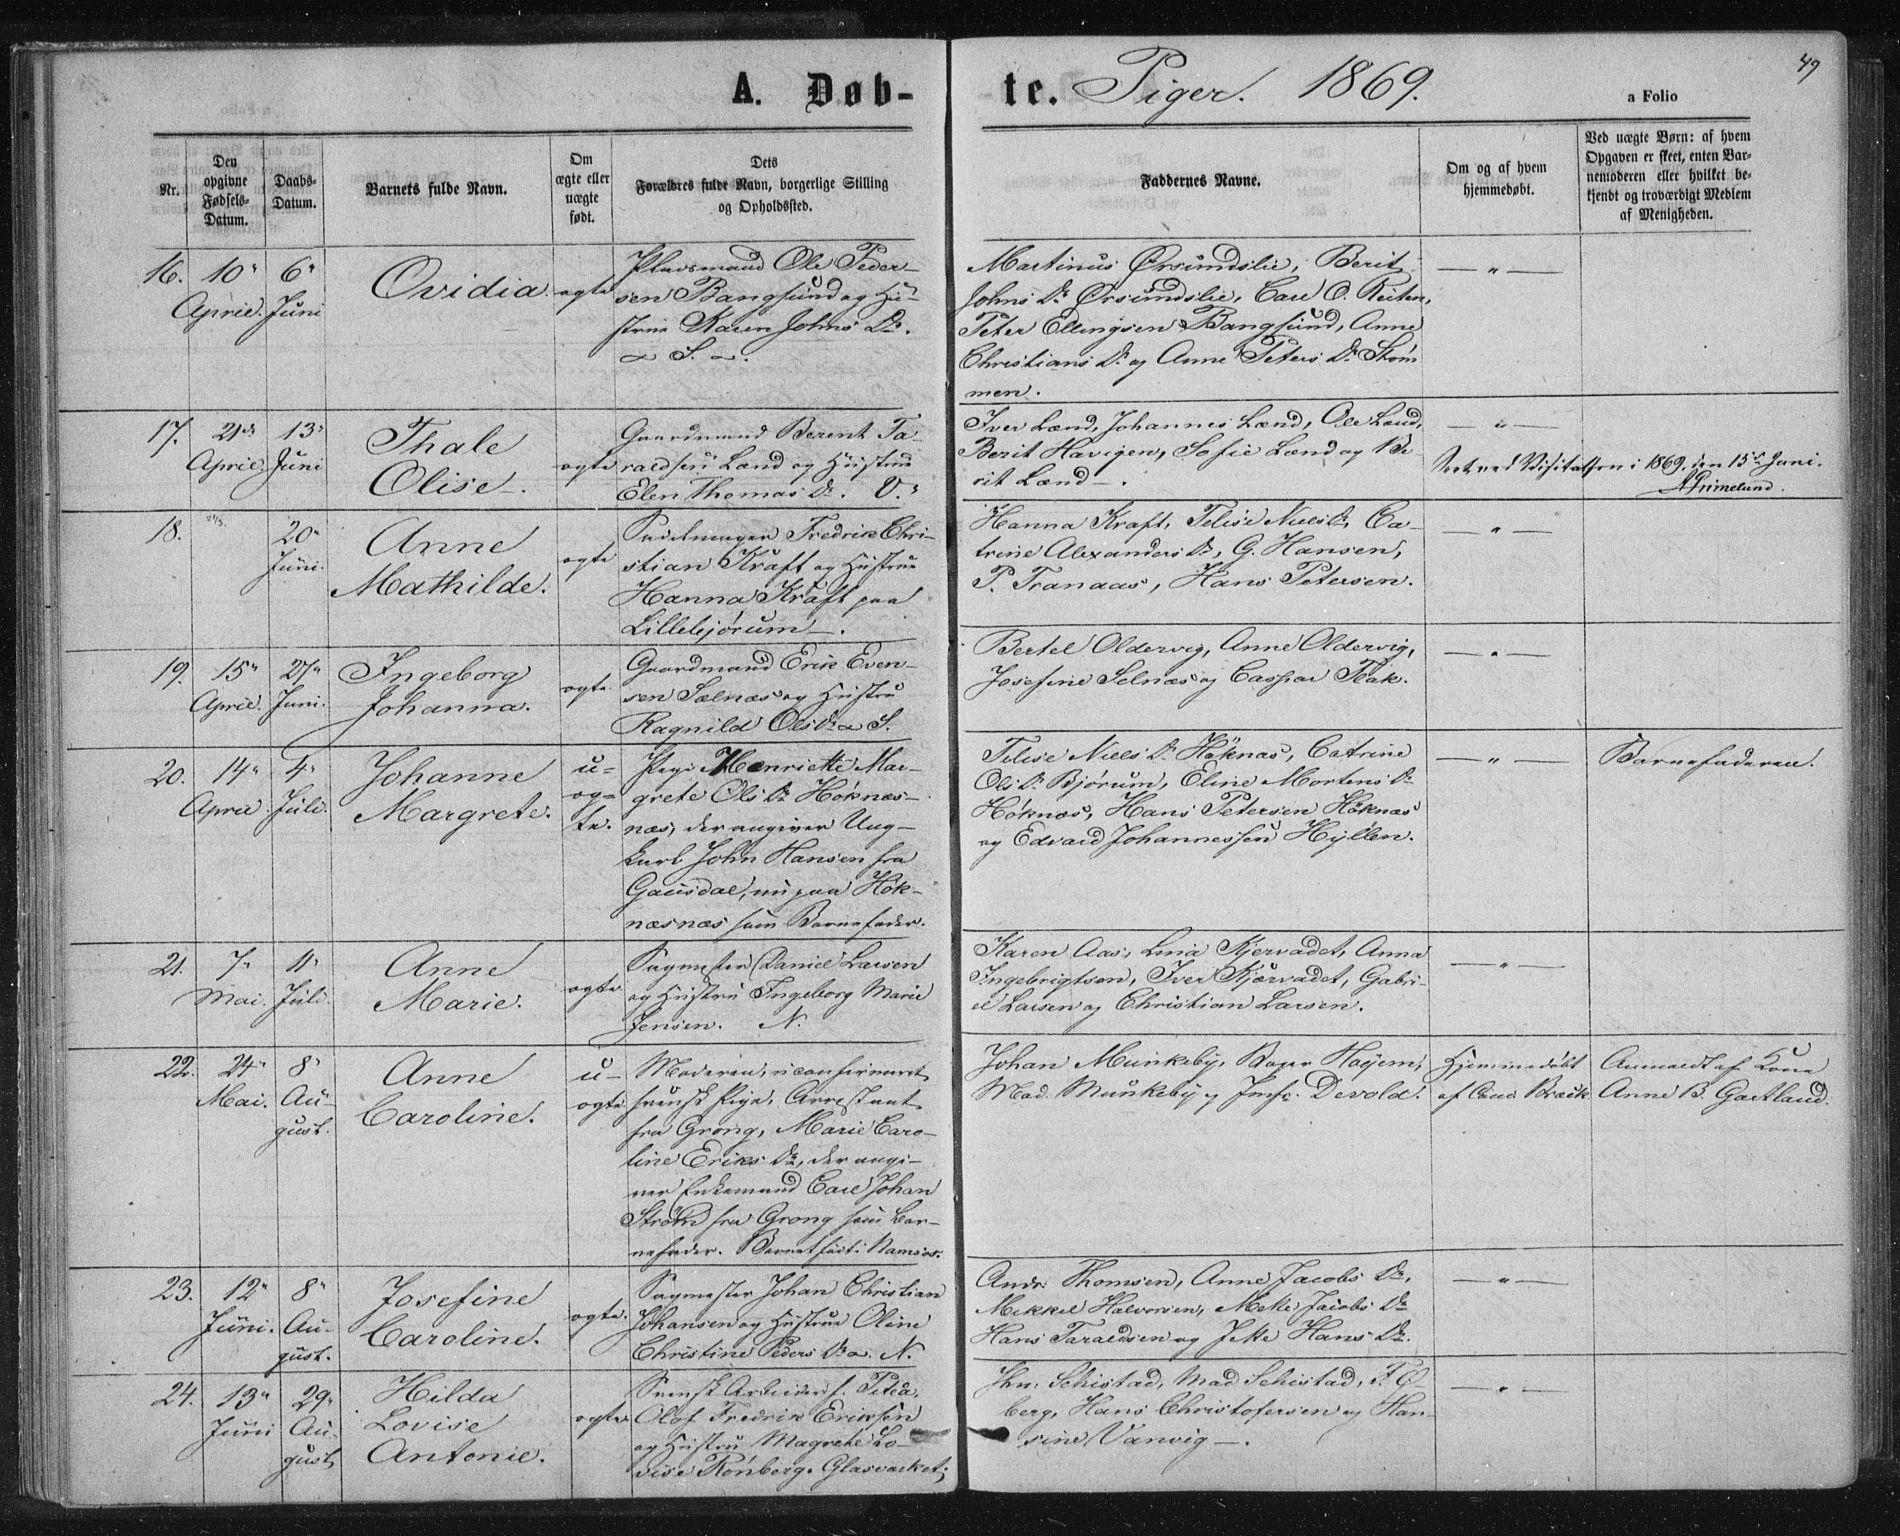 49
A. Døb-
te. Piger. 1869.
a Folio
Nr.
Den
opgivne
Fødsels-
Datum.
Daabs-
Datum.
Barnets fulde Navn.
Om
ægte eller
uægte
født.
Dets
Forældres fulde Navn, borgerlige Stilling
og Opholdssted.
Faddernes Navne.
Om og af hvem
hjemmedøbt.
Ved uægte Børn: af hvem
Opgaven er skeet, enten Bar-
nemoderen eller hvilket be-
kjendt og troværdigt Medlem
af Menigheden.
16.
10"
April.
6"
Juni
Ovidia.
ægte
Pladsmand Ole Peder-
sen Bangsund og Hu-
strue Karen Johns Dr.
S.
Martinus Ørsundslie, Berit
Johns Dr Ørsundslie, Carl O. Reiten,
Peter Ellingsen Bangsund, Anne
Christians Dr og Anne Peters Dr Strøm
men.
— " —
17.
21de
April.
13"
Juni
Thale
Olise.
ægte
Gaardmand Berent Ta-
raldsen Lænd og Hustrue
Elen Thomas Dr. V.
Iver Lænd, Johannes Lænd, Ole Lænd,
Berit Havigen, Sofie Lænd og Be
rit Lænd.
— " —
Seet ved Visitatsen i 1869, den 15de Juni.
A Grimelund.
18.
20"
Juni.
Anne
Mathilde.
ægte
Sadelmager Fredrik Chri-
stian Kraft og Hustrue
Hanna Kraft paa
Lillebjørum.
Hanna Kraft, Telise Niels Dr, Ca-
trine Alexanders Dr, G. Hansen,
P. Tranaas, Hans Petersen.
— " —
19.
15"
April.
27"
Juni.
Ingeborg
Johanna.
ægte
Gaardmand Erik Even-
sen Selnæs og Hustru
Ragnild Ols Dr S.
Bertel Oldervig, Anne Oldervig,
Josefine Selnæs og Caspar Bak.
— " —
20.
14"
April.
4"
Juli.
Johanne
Margrete.
u-
æg-
te.
Pige Henriette Mar-
grete Ols Dr Høknæs-
næs, der angiver Ung-
karl John Hansen fra
Gausdal, nu paa Høk-
næsnæs som Barnefader.
Telise Niels Dr Høknæs, Catrine
Ols Dr Bjørum, Eline Mortens Dr
Høknæs, Hans Petersen Høknæs
og Edvard Johannessen Hyllen.
— " —
Barnefaderen.
21.
7"
Mai.
11"
Juli.
Anne
Marie.
ægte
Sagmester Daniel Larsen
og Hustru Ingeborg Marie
Jensen. N.
Karen Aas, Lina Kjervadet, Anna
Ingebrigtsen, Iver Kjervadet, Gabri-
el Larsen og Christian Larsen.
— " —
22.
24"
Mai.
8"
Au-
gust.
Anne
Caroline.
u-
ægte
Moderen, uconfirmeret
svensk Pige, Arrestant
fra Grong, Marie Caro-
line Eriks Dr, der angi-
ver Enkemand Carl Johan
Strøm fra Grong som Bar-
nefader. Barnet født i Namsos.
Johan Munkeby, Bager Høyem,
Mad. Munkeby og Jmfr. Devold.
Hjemmedøbt
af Cand. Bræck
Anmeldt af Kone
Anne B. Gaetland.
23.
12"
Juni.
8"
Au-
gust.
Josefine
Caroline.
ægte.
Sagmester Johan Christian
Johansen og Hustrue Oline
Christine Peders Dr N.
Andr. Thomsen, Anne Jacobs Dr,
Mekkel Halvorsen, Mette Jacobs Dr
Hans Taraldsen og Jette Hans Dr.
— " —
24.
13"
Juni
29"
Au-
gust,
Hilda
Lovise
Antonie.
ægte
Svensk Arbeider f. Piteå,
Olof Fredrik Eriksen
og Hustru Magrete Lo-
vise Rönberg. Glasværket.
Jhn. Schistad, Mad Schistad, F. O-
berg, Hans Christofersen og Han-
sine Vanvig.
— " —